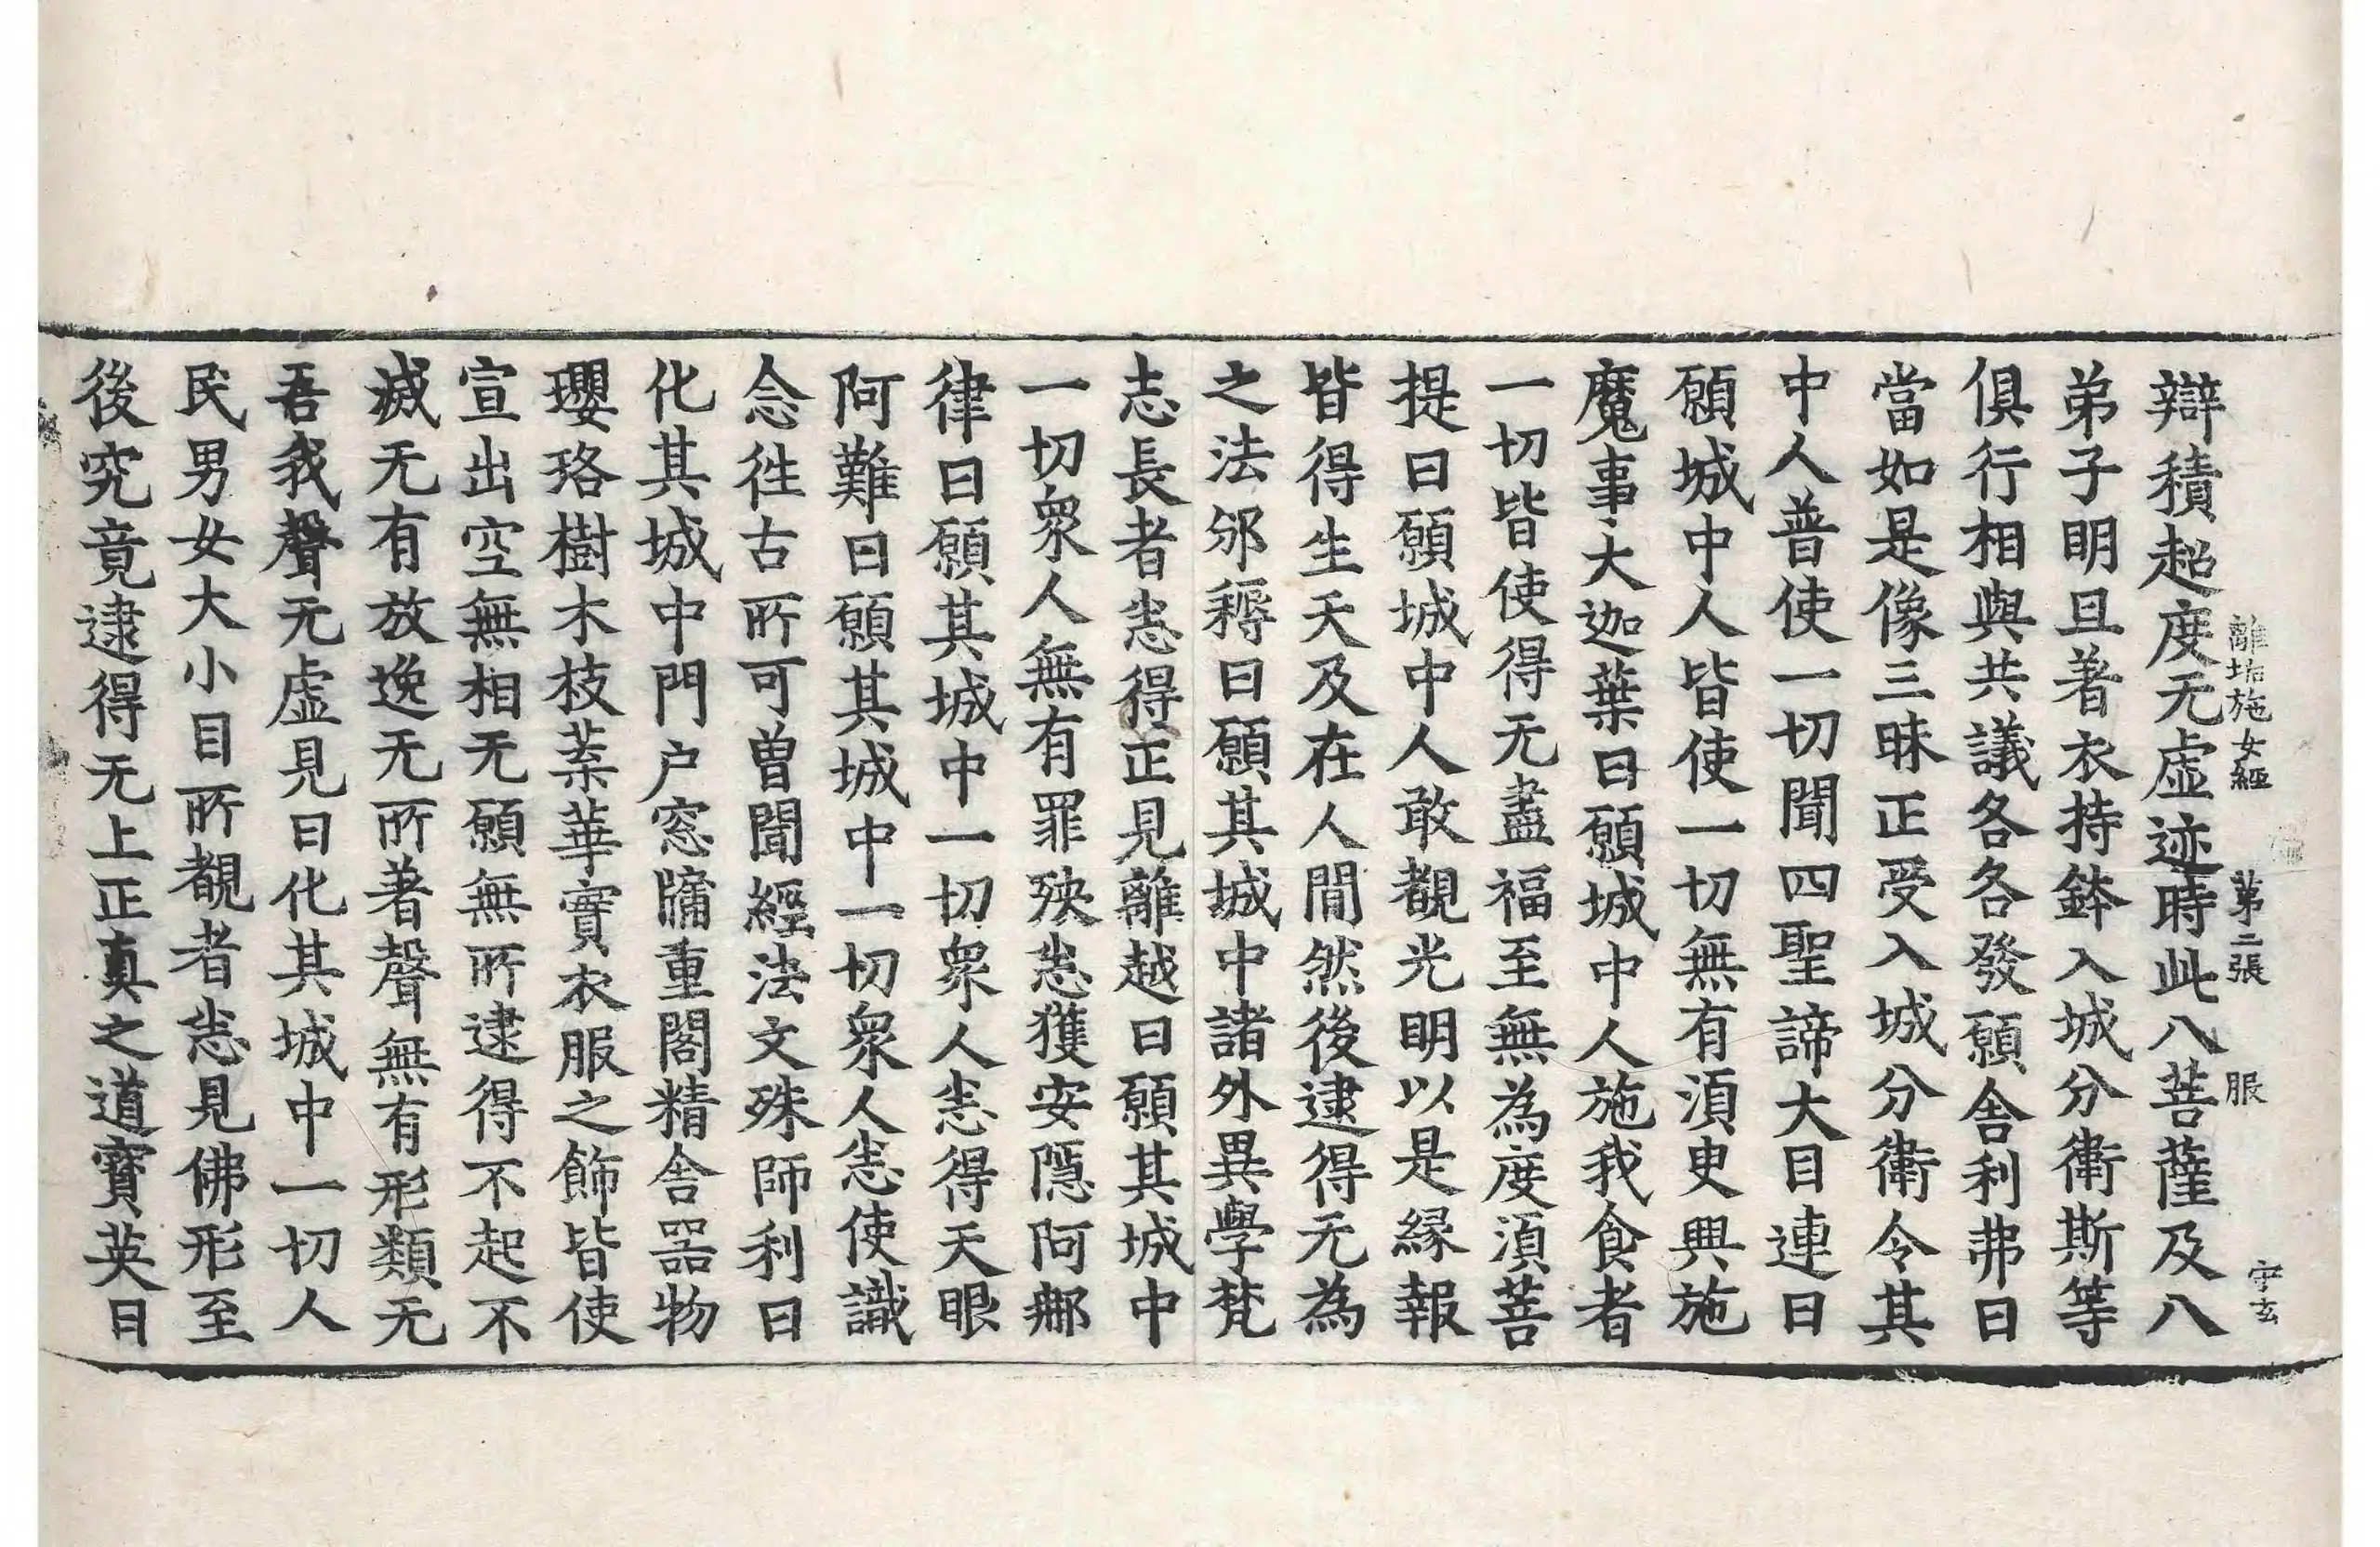 離垢施女經 第二張 服 守玄
辯積超度无虛迹時此八菩薩及八
弟子明旦著衣持鉢入城分衛斯等
俱行相與共議各各發願舍利弗曰
當如是像三昧正受入城分衛令其
中人普使一切聞四聖諦大目連曰
願城中人皆使一切無有湏臾興施
魔事大迦葉曰願城中人施我食者
一切皆使得无盡福至無為度湏菩
提曰願城中人敢覩光明以是緣報
皆得生天及在人間然後逮得无為
之法邠耨曰願其城中諸外異學梵
志長者悉得正見離越曰願其城中
一切衆人無有罪殃悉獲安隱阿那
律曰願其城中一切衆人悉得天眼
阿難曰願其城中一切衆人悉使識
念徃古所可曾聞經法文殊師利曰
化其城中門户窓牖重閣精舍器物
瓔珞樹木枝葉華實衣服之飾皆使
宣出空無相无願無所逮得不起不
滅无有放逸无所著聲無有形類无
吾我聲无虛見曰化其城中一切人
民男女大小目所覩者悉見佛形至
後究竟逮得无上正真之道寶英曰